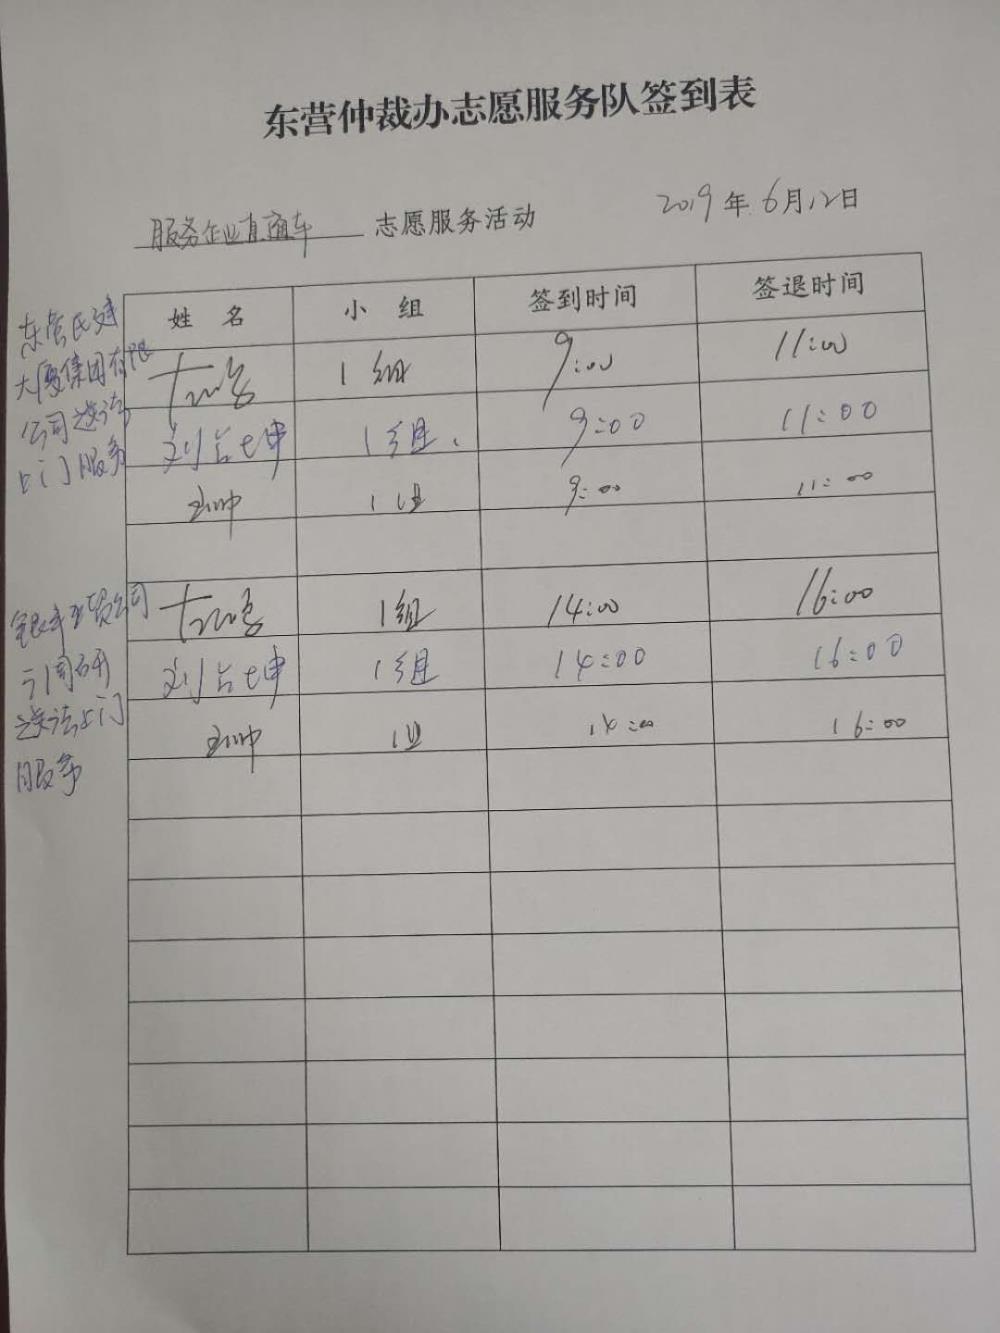 东营仲裁办志愿服务队签到表
服务企业直通车 志愿服务活动 2019年6月12日
姓 名 小 组 签到时间 签退时间
东营民建
大厦集团有限
公司送法
上门服务
1组 9:00 11:00
刘占坤 1组 9:00 11:00
1组 9:00 11:00
公司
调研
送法上门
服务
1组 14:00 16:00
刘占坤 1组 14:00 16:00
1组 14:00 16:00